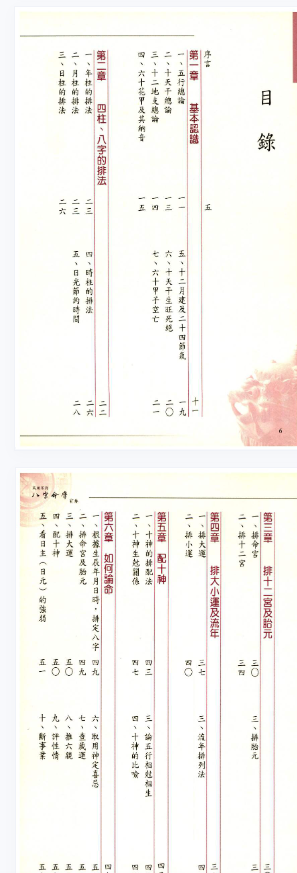 目錄
序言 五
第一章 基本認識 十一
一、五行總論 一一
二、十天干總論 一三
三、十二地支總論 一四
四、六十花甲及其納音 一五
五、十二月建及二十四節氣 一九
六、十天干生旺死絕 二〇
七、六十甲子空亡 二一
第二章 四柱、八字的排法 二二
一、年柱的排法 二三
二、月柱的排法 二三
三、日柱的排法 二六
四、時柱的排法 二六
五、日光節約時間 二八
6
八字命學
第三章 排十二宮及胎元
一、排命宮 三〇
二、排十二宮 三四
三、排胎元
第四章 排大小運及流年
一、排大運 三七
二、排小運 四〇
三、流年排列法
第五章 配十神
一、十神的排配法 四三
二、十神生剋關係 四七
三、論五行相剋相生
四、十神的比喻
第六章 如何論命
一、根據生辰年月日時，排定八字 四九
二、排命宮及胎元 四九
三、排大運 五〇
四、配十神 五〇
五、看日主（日元）的強弱 五一
六、取用神定喜忌
七、查歲運
八、推六親
九、評性情
十、斷事業